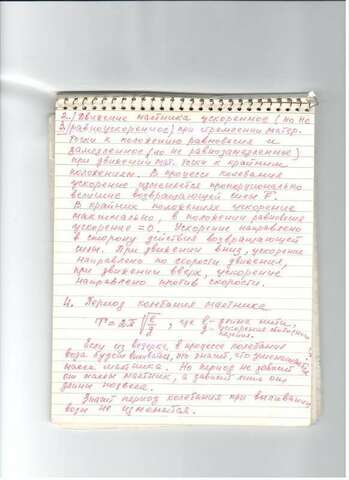 2./ Движение маятника ускоренное (но не
3/ равноускоренное) при стремлении матер.
точки к положению равновесия и
замедленное (но не равнозамедленные)
при движении мат. точки к крайним
положениям. В процессе колебания
ускорение изменяется пропорционально
величине возвращающей силы F.
В крайних положениях ускорение
максимально, в положении равновесия
ускорение = 0. Ускорение направлено
в сторону действия возвращающей
силы. При движении вниз, ускорение
направлено по скорости движения,
при движении вверх, ускорение
направлено против скорости.
4. Период колебания маятника
T = 2π √ℓ/g , где ℓ - длина нити,
g - ускорение свободного
падения.
Если из ведерка, в процессе колебания
вода будет выливаться, это значит, что уменьшается
масса маятника. Но период не зависит
от массы маятник, а зависит лишь от
длины подвеса.
Значит период колебания при выливании
воды не изменится.